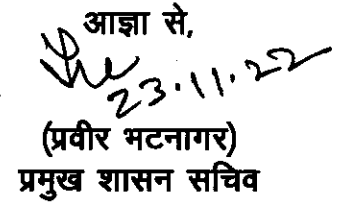 आज्ञा से,
23.11.22
(प्रवीर भटनागर)
प्रमुख शासन सचिव